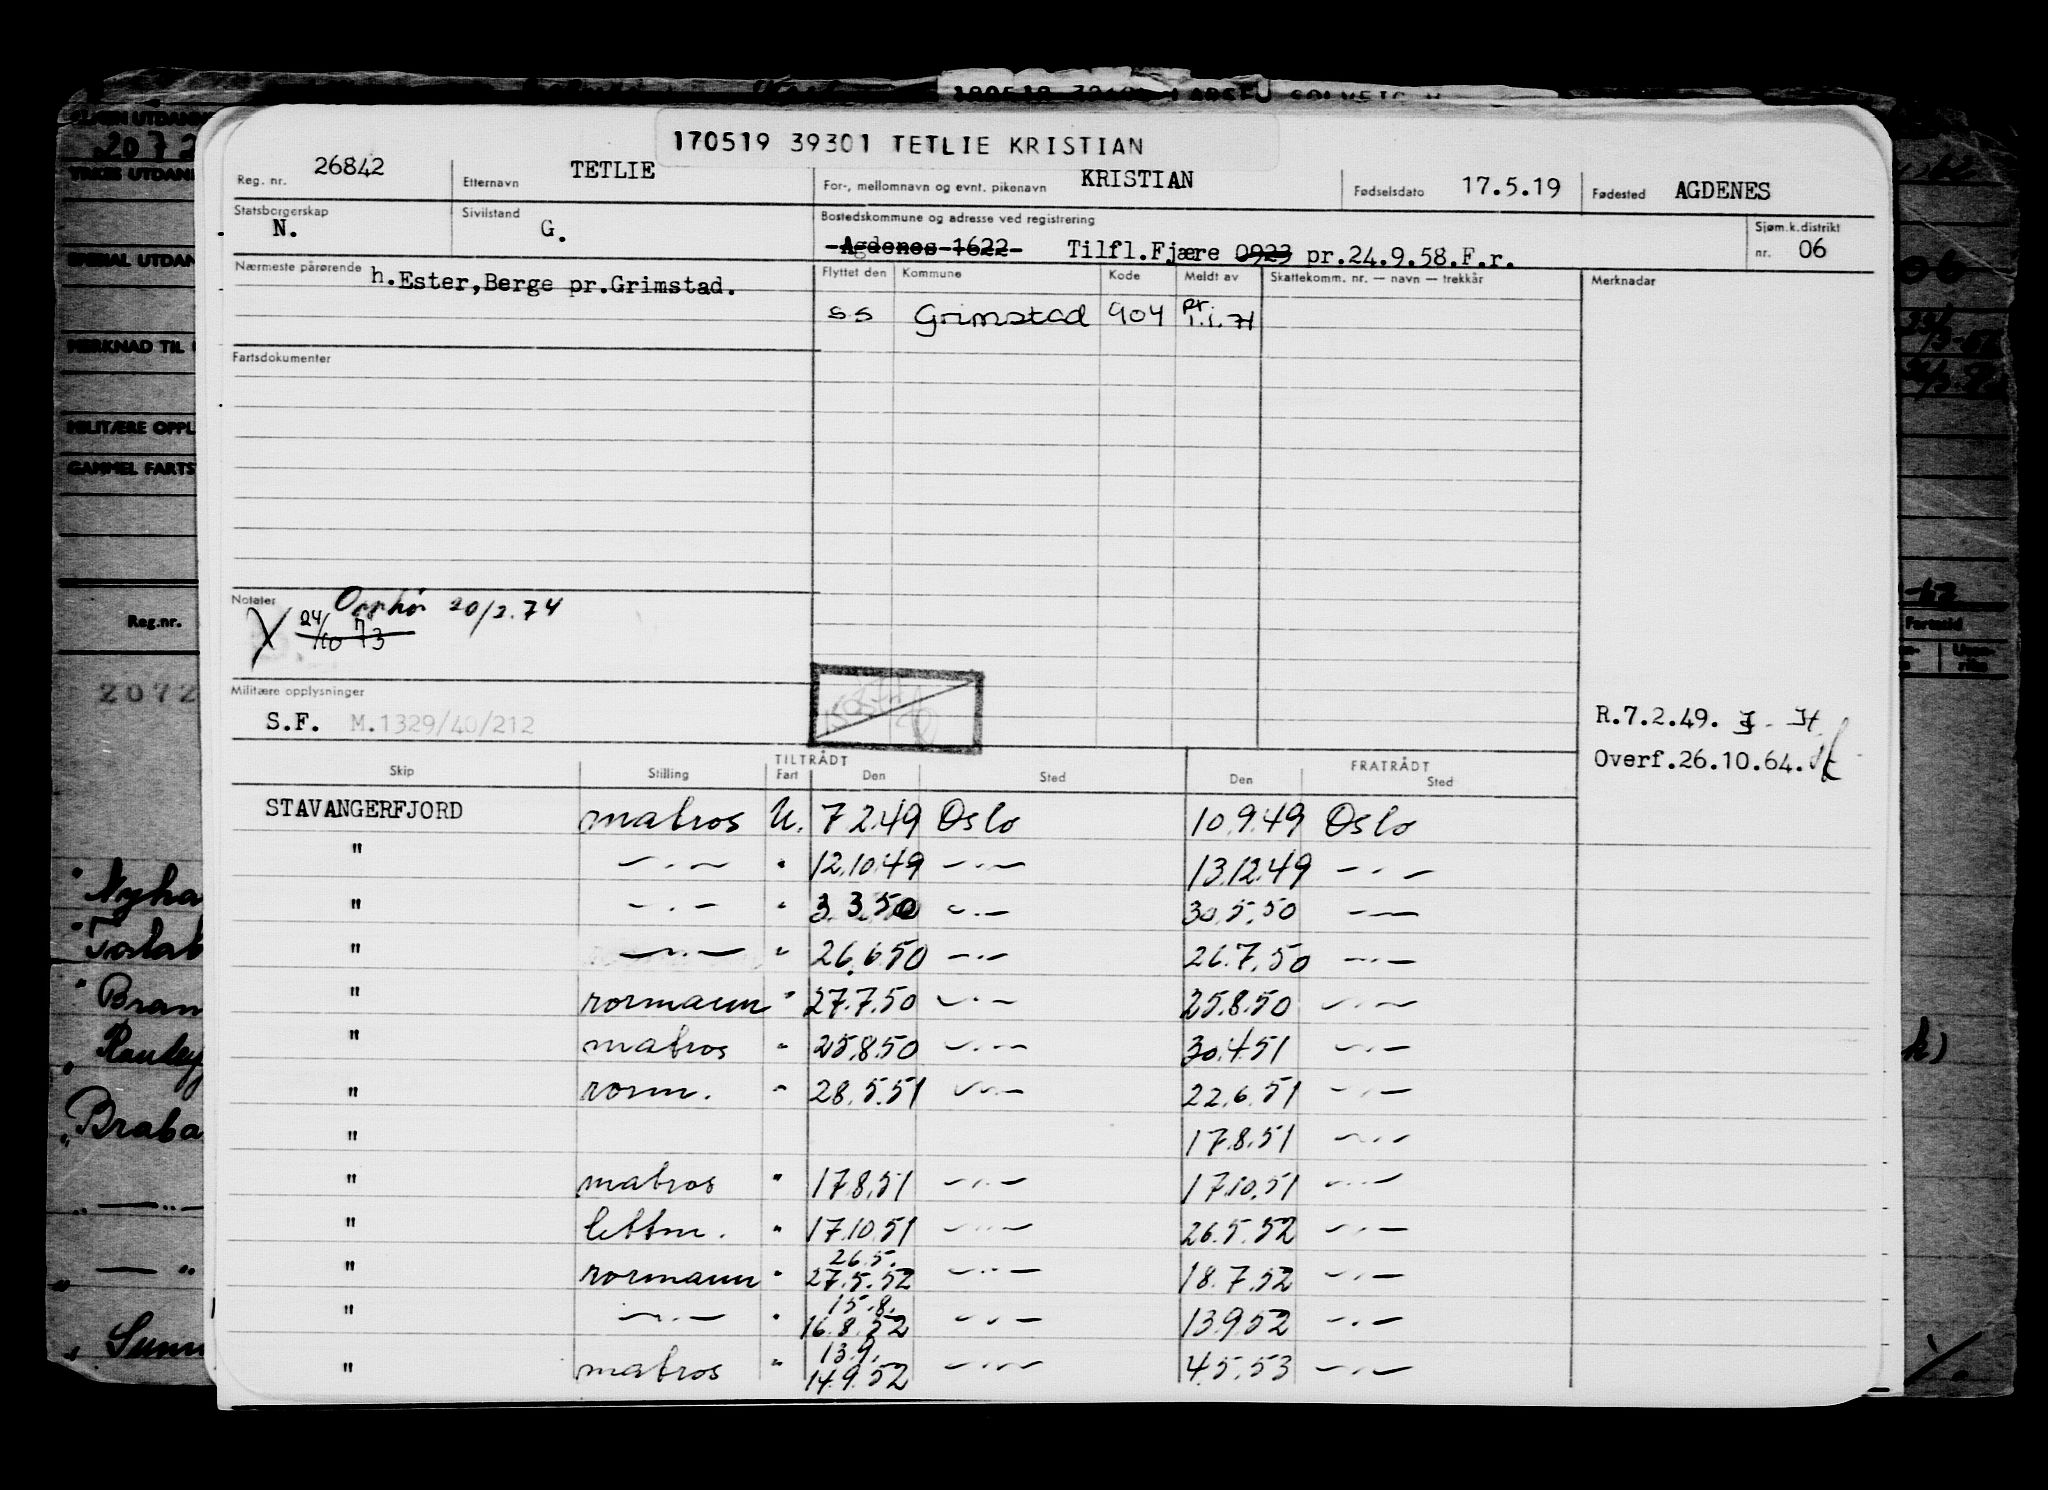 170519 39301 TETLIE KRISTIAN
Reg. nr. 26842 Etternavn TETLIE For-, mellomnavn og evnt. pikenavn KRISTIAN Fødselsdato 17.5.19 Fødested AGDENES
Statsborgerskap N. Sivilstand G. Bostedskommune og adresse ved registrering Sjøm.k.distrikt
Agdenes 1622 Tilfl.Fjære 0923 pr.24.9.58.F.r. nr. 06
Nærmeste pårørende h.Ester,Berge pr.Grimstad. Flyttet den Kommune Kode Meldt av Skattekomm. nr. — navn — trekkår Merknadar
ss Grimstad 904 pr. 1.1.71
Fartsdokumenter
Notater Opphør 20/3.74
24/10 73
Militære opplysninger
S.F. M.1329/40/212
R.7.2.49.
Overf.26.10.64.
TILTRÅDT FRATRÅDT
Skip Stilling Fart Den Sted Den Sted
STAVANGERFJORD matros U. 7 2.49 Oslo 10.9.49 Oslo
" —.— " 12.10.49 —.— 13.12.49 —.—
" —.— " 3.3.50 —.— 30.5.50 ——
" —.— " 26.6.50 —.— 26.7.50 —.—
" rormann " 27.7.50 —.— 25.8.50 —.—
" matros " 25.8.50 —.— 30.4.51 —.—
" rorm. " 28.5.51 —.— 22.6.51 —.—
" 17.8.51 —.—
" matros " 17.8.51 —.— 17.10.51 —.—
" lettm. " 17.10.51 —.— 26.5.52 —.—
" rormann " 26.5. 27.5.52 —.— 18.7.52 —.—
" —.— " 15.8. 16.8.52 —.— 13.9.52 —.—
" matros " 13.9. 14.9.52 —.— 4.5.53 —.—
Reg.nr.
2072